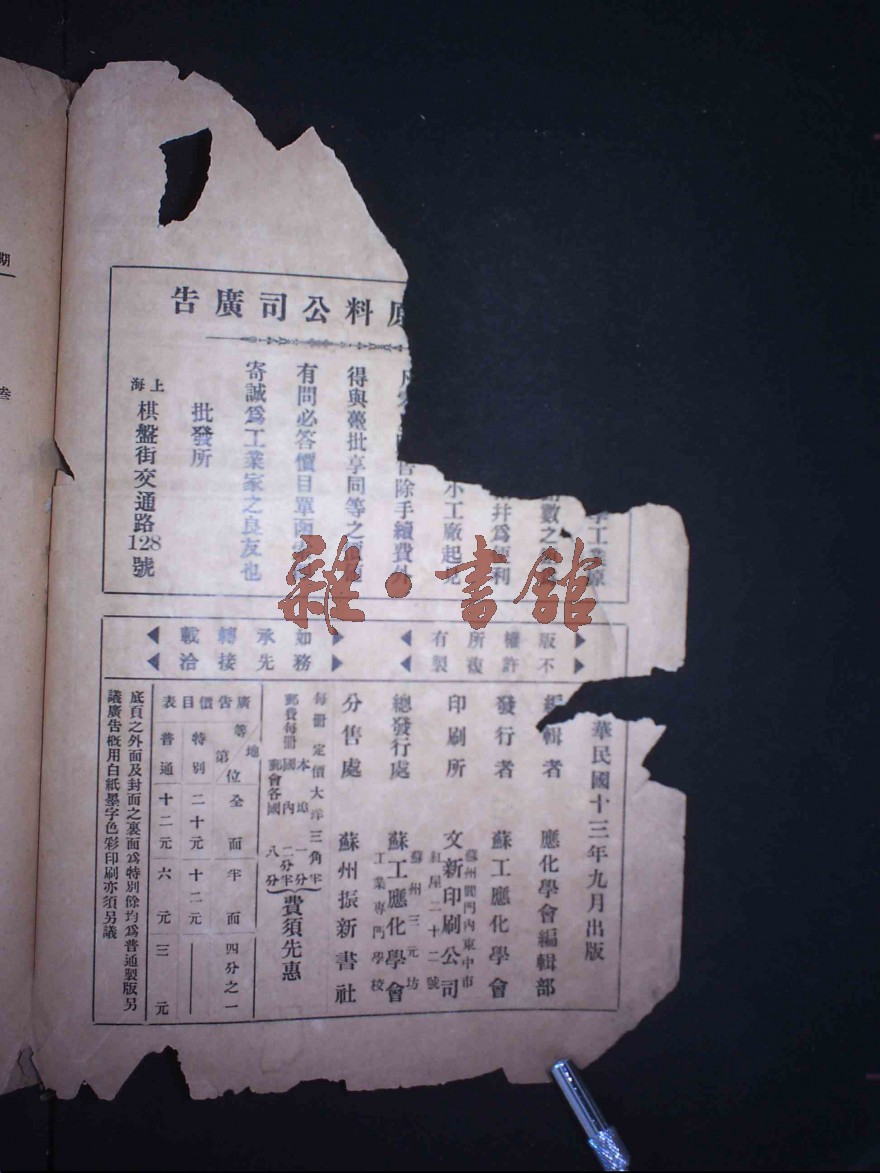 原料公司廣告
學工業原
數之
幷爲便利
小工廠起見
除手續費外
得與躉批享同等之
有問必答價目單函
寄誠爲工業家之良友也
批發所
上海 棋盤街交通路128號
版權所有
不許複製
如承轉載
務先接洽
華民國十三年九月出版
編輯者 應化學會編輯部
發行者 蘇工應化學會
印刷所 文新印刷公司
蘇州閶門內東中市
紅屋二十二號
總發行處 蘇工應化學會
蘇州三元坊
工業專門學校
分售處 蘇州振新書社
每册定價大洋三角半
郵費每册 本埠 一分
國內 二分半
郵會各國 八分
費須先惠
廣告價目表
地位 全面 半面 四分之一
等第
特別 二十元 十二元 ——
普通 十二元 六元 三元
底頁之外面及封面之裏面爲特別餘均爲普通製版另
議廣告概用白紙墨字色彩印刷亦須另議
雜·書館
期
叁